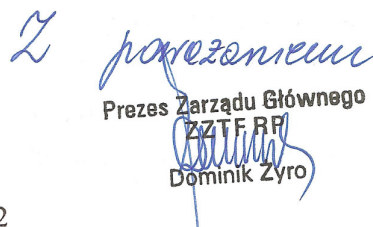 Z poważaniem
Prezes Zarządu Głównego
ZZTF RP
Dominik Żyro
2